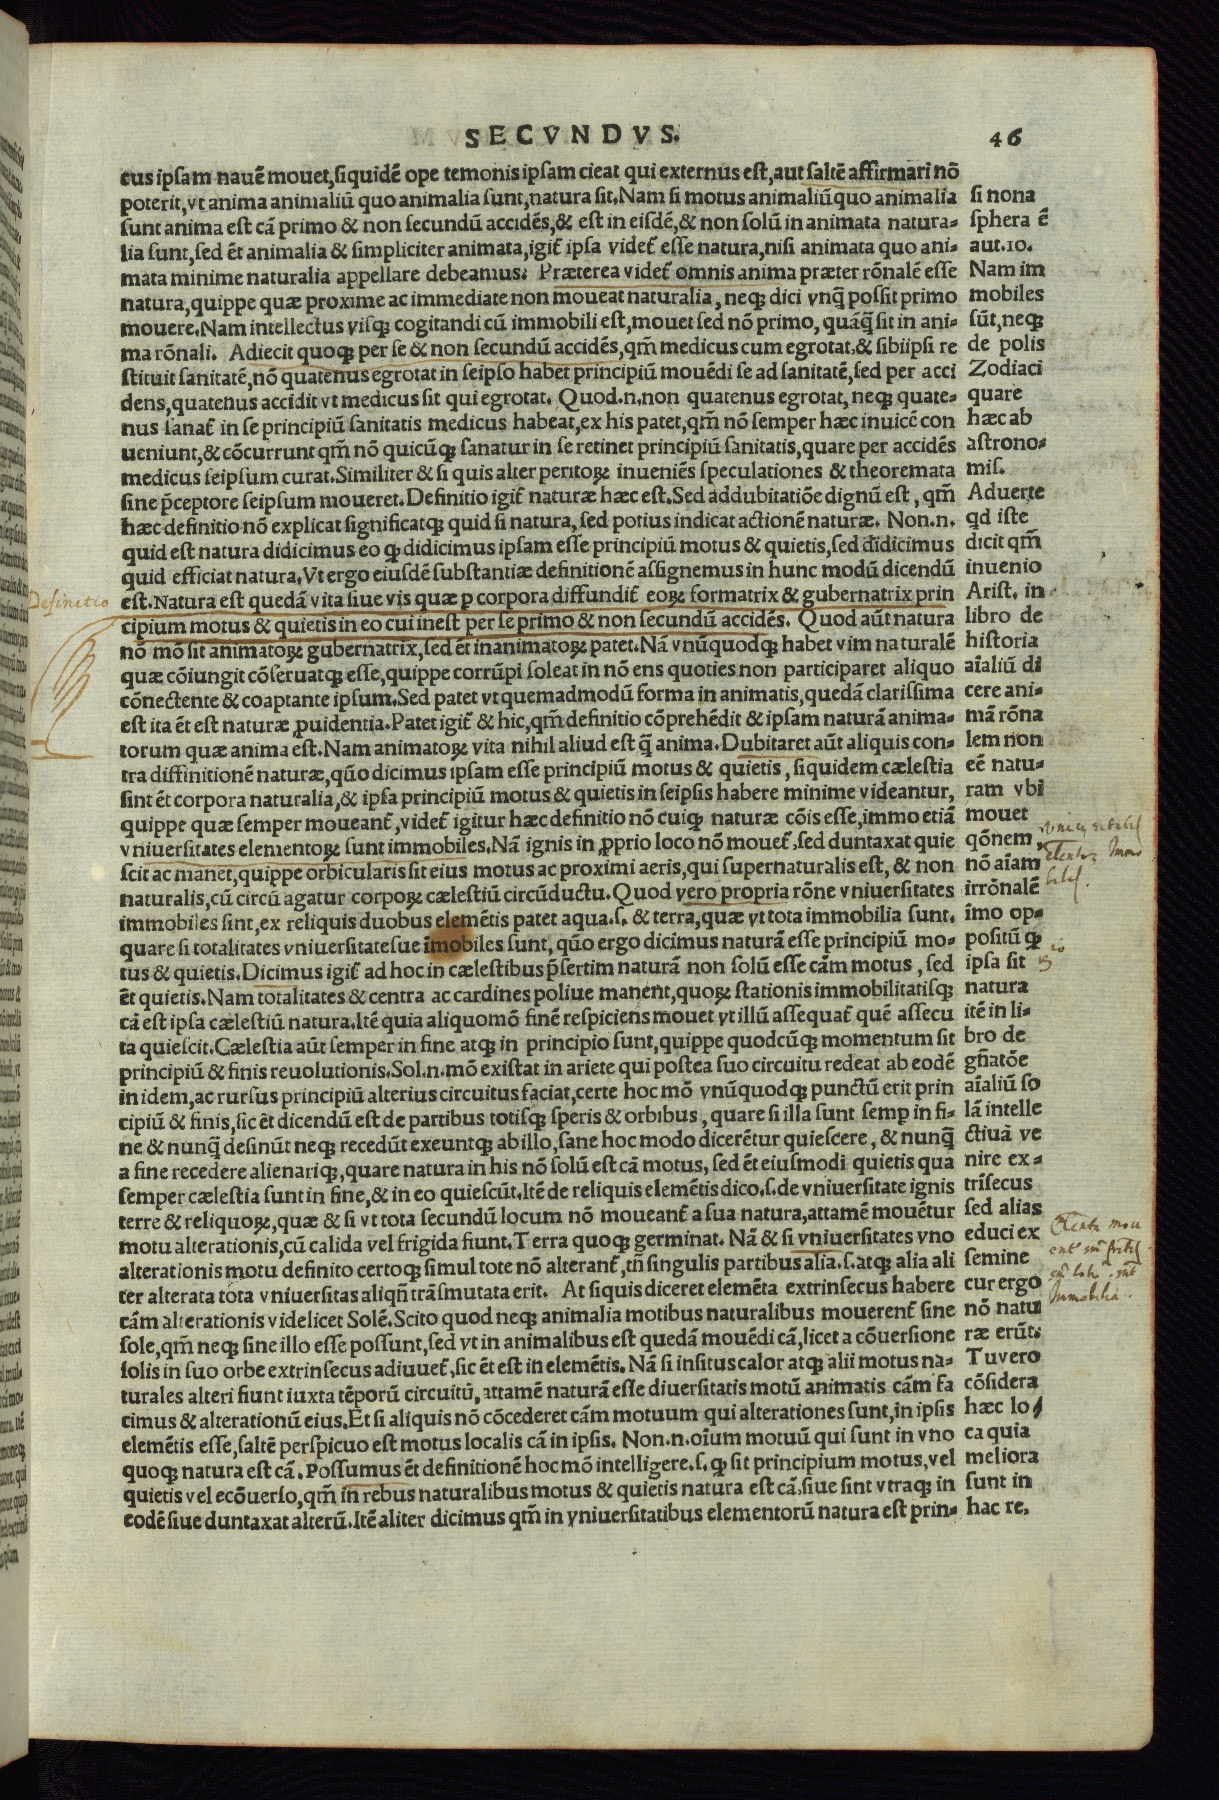 SECVNDVS.
46
cus ipsam nauẽ mouet,siquidẽ ope temonis ipsam cieat qui externus est,aut saltẽ affirmari nõ
poterit,vt anima animaliũ quo animalia sunt,natura sit.Nam si motus animaliũquo animalia
sunt anima est cã primo & non secundũ accidẽs,& est in eisdẽ,& non solũ in animata natura-
lia sunt,sed ẽt animalia & simpliciter animata,igit̃ ipsa videt̃ esse natura,nisi animata quo ani-
mata minime naturalia appellare debeamus. Præterea videt̃ omnis anima præter rõnalẽ esse
natura,quippe quæ proxime ac immediate non moueat naturalia, neqꝫ dici vnq̃ possit primo
mouere.Nam intellectus visqꝫ cogitandi cũ immobili est,mouet sed nõ primo, quãq̃ sit in ani-
ma rõnali. Adiecit quoqꝫ per se & non secundũ accidẽs,qm̃ medicus cum egrotat,& sibiipsi re
stituit sanitatẽ,nõ quatenus egrotat in seipso habet principiũ mouẽdi se ad sanitatẽ,sed per acci
dens,quatenus accidit vt medicus sit qui egrotat. Quod.n.non quatenus egrotat, neqꝫ quate-
nus sanat̃ in se principiũ sanitatis medicus habeat,ex his patet,qm̃ nõ semper hæc inuicẽ con
ueniunt,& cõcurrunt qm̃ nõ quicũqꝫ sanatur in se retinet principiũ sanitatis,quare per accidẽs
medicus seipsum curat.Similiter & si quis alter peritoꝝ inueniẽs speculationes & theoremata
sine p̃ceptore seipsum moueret.Definitio igit̃ naturæ hæc est.Sed addubitatiõe dignũ est, qm̃
hæc definitio nõ explicat significatqꝫ quid si natura, sed potius indicat actionẽ naturæ. Non.n.
quid est natura didicimus eo ꝙ didicimus ipsam esse principiũ motus & quietis,sed didicimus
quid efficiat natura.Vt ergo eiusdẽ substantiæ definitionẽ assignemus in hunc modũ dicendũ
est.Natura est quedã vita siue vis quæ p corpora diffundit̃ eoꝝ formatrix & gubernatrix prin
cipium motus & quietis in eo cui inest per se primo & non secundũ accidẽs. Quod aũt natura
nõ mõ sit animatoꝝ gubernatrix,sed ẽt inanimatoꝝ patet.Nã vnũquodqꝫ habet vim naturalẽ
quæ cõiungit cõseruatqꝫ esse,quippe corrũpi soleat in nõ ens quoties non participaret aliquo
cõnectente & coaptante ipsum.Sed patet vt quemadmodũ forma in animatis,quedã clarissima
est ita ẽt est naturæ ꝓuidentia.Patet igit̃ & hic,qm̃ definitio cõprehẽdit & ipsam naturã anima-
torum quæ anima est.Nam animatoꝝ vita nihil aliud est q̃ anima.Dubitaret aũt aliquis con-
tra diffinitionẽ naturæ,qũo dicimus ipsam esse principiũ motus & quietis, siquidem cælestia
sint ẽt corpora naturalia,& ipsa principiũ motus & quietis in seipsis habere minime videantur,
quippe quæ semper moueant̃,videt̃ igitur hæc definitio nõ cuiqꝫ naturæ cõis esse,immo etiã
vniuersitates elementoꝝ sunt immobiles.Nã ignis in ꝓprio loco nõ mouet̃,sed duntaxat quie
scit ac manet,quippe orbicularis sit eius motus ac proximi aeris,qui supernaturalis est, & non
naturalis,cũ circũ agatur corpoꝝ cælestiũ circũductu.Quod vero propria rõne vniuersitates
immobiles sint,ex reliquis duobus elemẽtis patet aqua.s. & terra,quæ vt tota immobilia sunt,
quare si totalitates vniuersitatesue ĩmobiles sunt, qũo ergo dicimus naturã esse principiũ mo-
tus & quietis.Dicimus igit̃ ad hoc in cælestibus p̃sertim naturã non solũ esse cãm motus, sed
ẽt quietis.Nam totalitates & centra ac cardines poliue manent,quoꝝ stationis immobilitatisqꝫ
cã est ipsa cælestiũ natura.Itẽ quia aliquomõ finẽ respiciens mouet vt illũ assequat̃ quẽ assecu
ta quiescit.Cælestia aũt semper in fine atqꝫ in principio sunt,quippe quodcũqꝫ momentum sit
principiũ & finis reuolutionis.Sol.n.mõ existat in ariete qui postea suo circuitu redeat ab eodẽ
in idem,ac rursus principiũ alterius circuitus faciat,certe hoc mõ vnũquodqꝫ punctũ erit prin
cipiũ & finis,sic ẽt dicendũ est de partibus totisqꝫ speris & orbibus, quare si illa sunt semp in fi-
ne & nunq̃ desinũt neqꝫ recedũt exeuntqꝫ ab illo,sane hoc modo dicerẽtur quiescere, & nunq̃
a fine recedere alienariqꝫ,quare natura in his nõ solũ est cã motus, sed ẽt eiusmodi quietis qua
semper cælestia sunt in fine,& in eo quiescũt.Itẽ de reliquis elemẽtis dico.s.de vniuersitate ignis
terre & reliquoꝝ,quæ & si vt tota secundũ locum nõ moueant̃ a sua natura,attamẽ mouẽtur
motu alterationis,cũ calida vel frigida fiunt.Terra quoqꝫ germinat. Nã & si vniuersitates vno
alterationis motu definito certoqꝫ simul tote nõ alterant̃, tñ singulis partibus alia.s.atqꝫ alia ali
ter alterata tota vniuersitas aliqñ trãsmutata erit. At siquis diceret elemẽta extrinsecus habere
cãm alterationis videlicet Solẽ.Scito quod neqꝫ animalia motibus naturalibus mouerent̃ sine
sole,qm̃ neqꝫ sine illo esse possunt,sed vt in animalibus est quedã mouẽdi cã,licet a cõuersione
solis in suo orbe extrinsecus adiuuet̃,sic ẽt est in elemẽtis. Nã si insitus calor atqꝫ alii motus na-
turales alteri fiunt iuxta tẽporũ circuitũ, attamẽ naturã esse diuersitatis motũ animatis cãm fa
cimus & alterationũ eius.Et si aliquis nõ cõcederet cãm motuum qui alterationes sunt,in ipsis
elemẽtis esse,saltẽ perspicuo est motus localis cã in ipsis. Non.n.oĩum motuũ qui sunt in vno
quoqꝫ natura est cã. Possumus ẽt definitionẽ hoc mõ intelligere.s. ꝙ sit principium motus,vel
quietis vel ecõuerso,qm̃ in rebus naturalibus motus & quietis natura est cã,siue sint vtraqꝫ in
eodẽ siue duntaxat alterũ.Itẽ aliter dicimus qm̃ in vniuersitatibus elementorũ natura est prin-
si nona
sphera ẽ
aut.10.
Nam im
mobiles
sũt,neqꝫ
de polis
Zodiaci
quare
hæc ab
astrono-
mis.
Aduerte
qd iste
dicit qm̃
inuenio
Arist. in
libro de
historia
aĩaliũ di
cere ani-
mã rõna
lem non
eẽ natu-
ram vbi
mouet
qõnem
nõ aĩam
irrõnalẽ
ĩmo op-
positũ ꝙ
ipsa sit
natura
itẽ in li-
bro de
gñatõe
aĩaliũ so
lã intelle
ctiuã ve
nire ex-
trĩsecus
sed alias
educi ex
semine
cur ergo
nõ natu
ræ erũt.
Tu vero
cõsidera
hæc lo
ca quia
meliora
sunt in
hac re.
Definitio